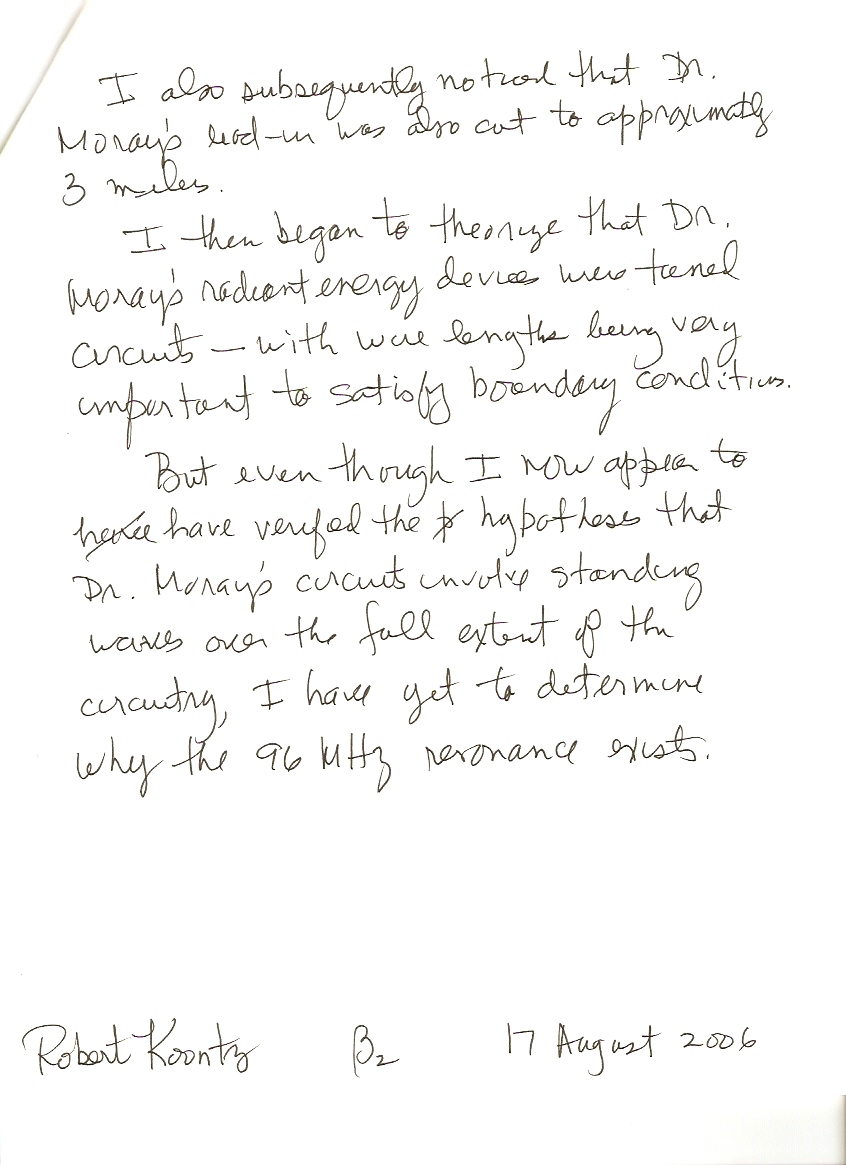 I also subsequently noticed that Dr.
Moray's lead-in was also cut to approximatly
3 miles.
I then began to theorize that Dr.
Moray's radiant energy devices were tuned
circuits — with wire lengths being very
important to satisfy boundary conditions.
But even though I now appear to
have verified the hypothesis that
Dr. Moray's circuits involve standing
waves over the full extent of the
circuitry, I have yet to determine
why the 96 MHz resonance exists.
Robert Koontz β2 17 August 2006